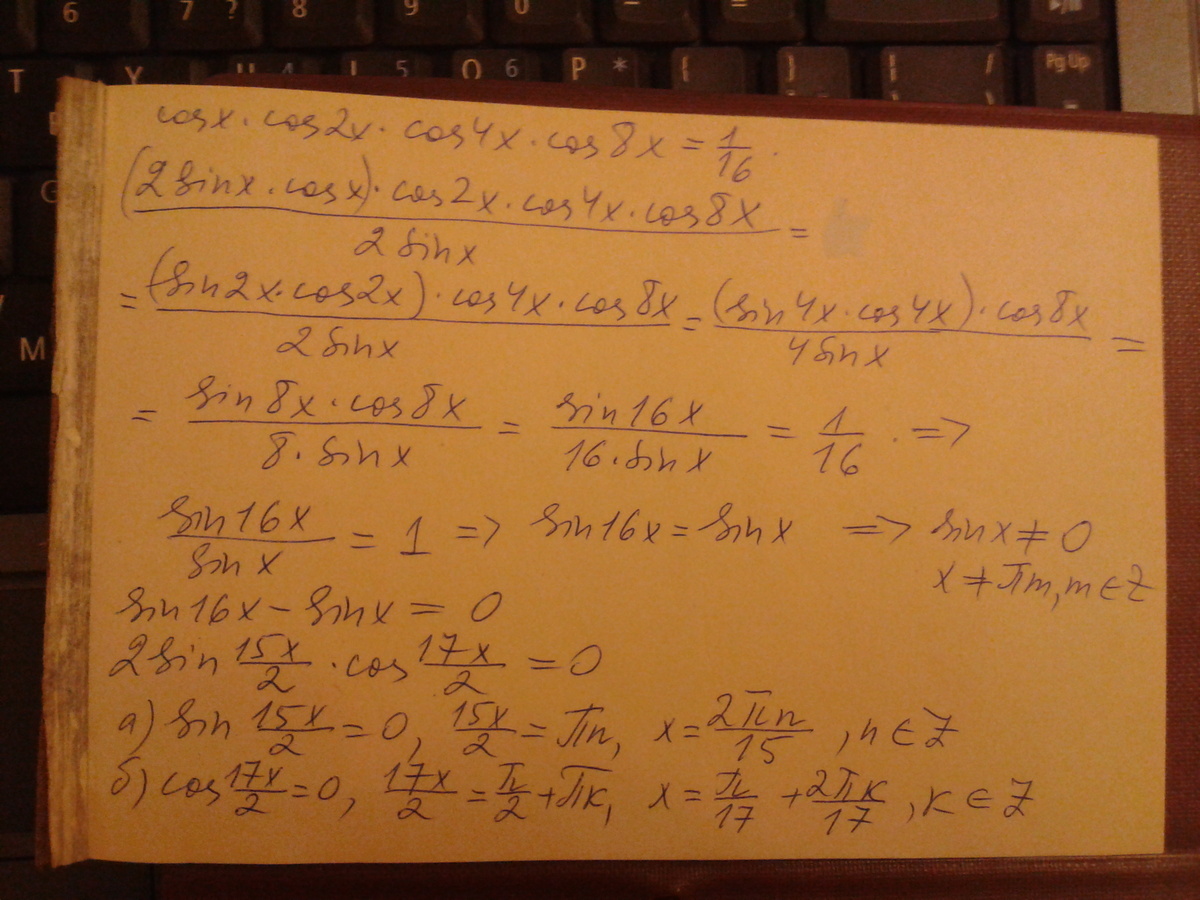 6 7 ? 8 9 0 – =
T Y U 4 I 5 O 6 P * { } [ / Pg Up
G
M
cosx · cos2x · cos4x · cos8x = 1/16.
(2sinx · cosx) · cos2x · cos4x · cos8x / 2sinx =
= (sin2x · cos2x) · cos4x · cos8x / 2sinx = (sin4x · cos4x) · cos8x / 4sinx =
= sin8x · cos8x / 8 · sinx = sin16x / 16 · sinx = 1/16 . =>
sin16x / sinx = 1 => sin16x = sinx => sinx ≠ 0
x ≠ πm, m ∈ Z
sin16x – sinx = 0
2sin 15x/2 · cos 17x/2 = 0
а) sin 15x/2 = 0, 15x/2 = πn, x = 2πn/15 , n ∈ Z
б) cos 17x/2 = 0, 17x/2 = π/2 + πk, x = π/17 + 2πk/17 , k ∈ Z